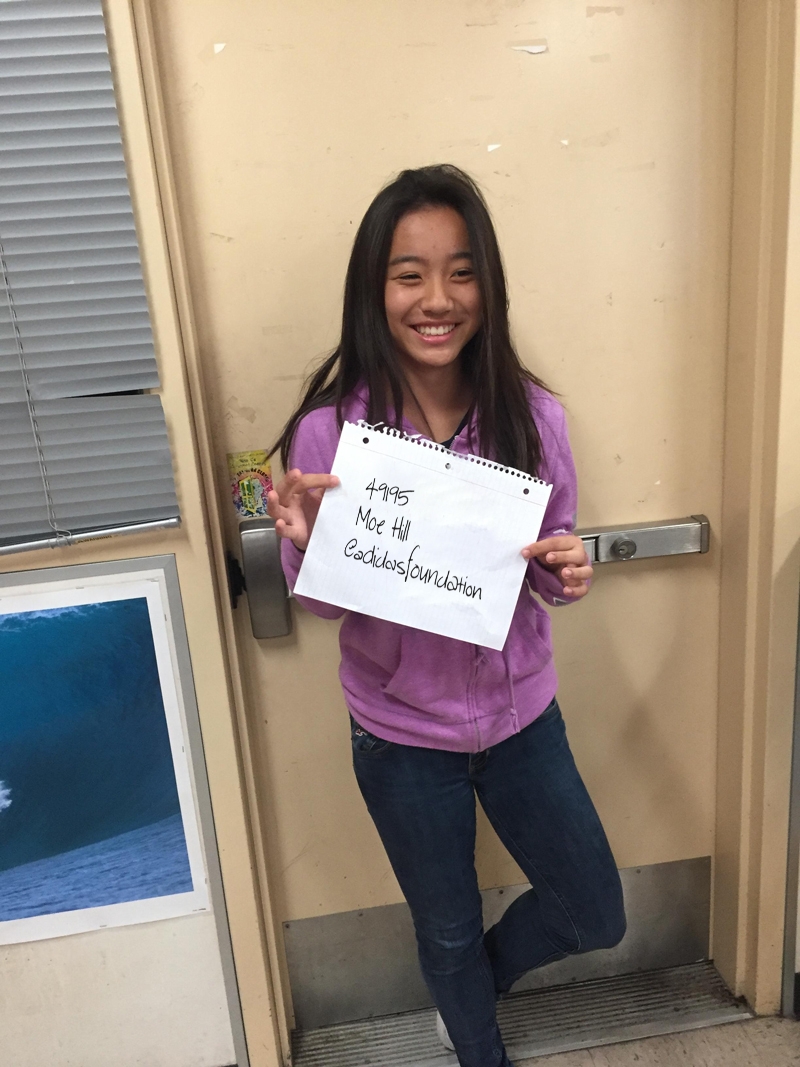 49195
Moe Hill
@adidasfoundation